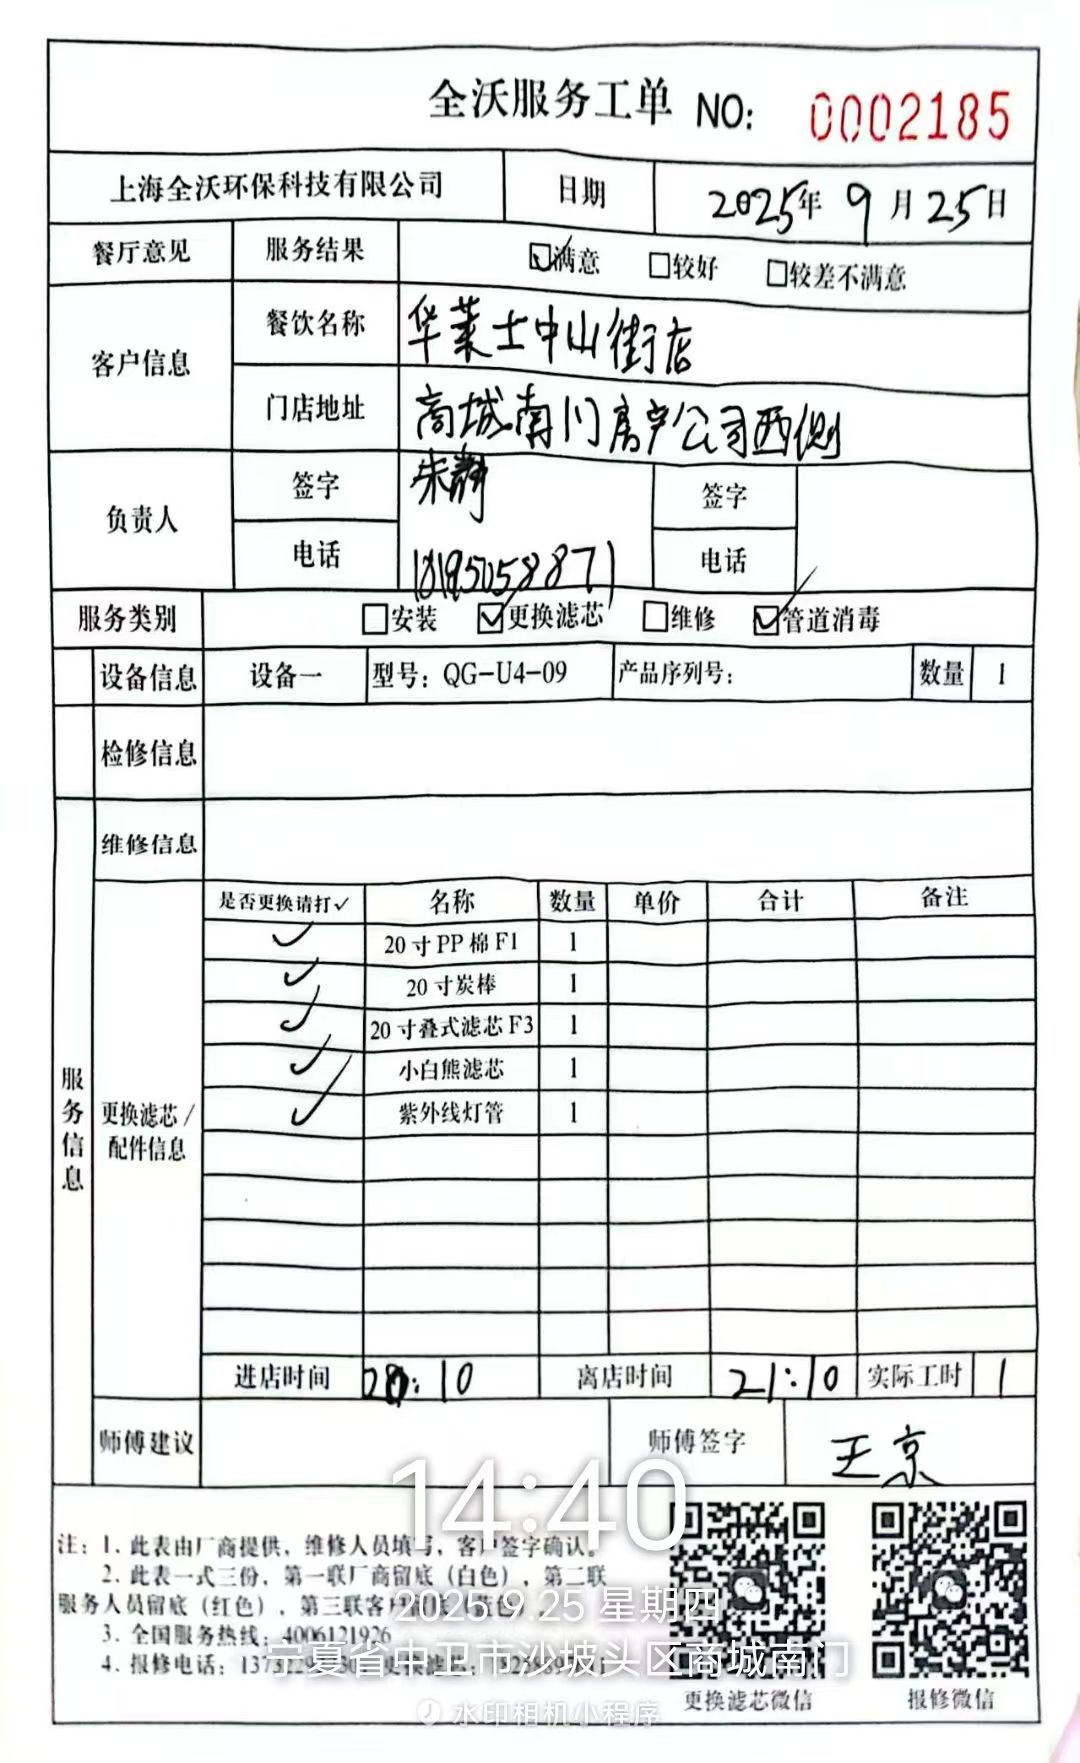 全沃服务工单 NO: 0002185
上海全沃环保科技有限公司 日期 2025年9月25日
餐厅意见 服务结果 ☑满意 □较好 □较差不满意
客户信息 餐饮名称 华莱士中山街店
门店地址 商城南门房产公司西侧
负责人 签字 朱静 签字
电话 18195058871 电话
服务类别 □安装 ☑更换滤芯 □维修 ☑管道消毒
设备信息 设备一 型号：QG-U4-09 产品序列号： 数量 1
检修信息
维修信息
服务信息
更换滤芯/配件信息
是否更换请打✓ 名称 数量 单价 合计 备注
✓ 20寸PP棉F1 1
✓ 20寸炭棒 1
✓ 20寸叠式滤芯F3 1
✓ 小白熊滤芯 1
✓ 紫外线灯管 1
进店时间 20:10 离店时间 21:10 实际工时 1
师傅建议 师傅签字 王京
14:40
注：1. 此表由厂商提供，维修人员填写，客户签字确认。
2. 此表一式三份，第一联厂商留底（白色），第二联
服务人员留底（红色），第三联客户
2025.9.25 星期四
3. 全国服务热线：4006121926
宁夏省中卫市沙坡头区商城南门
4. 报修电话： 更换滤芯：
更换滤芯微信 报修微信
水印相机小程序